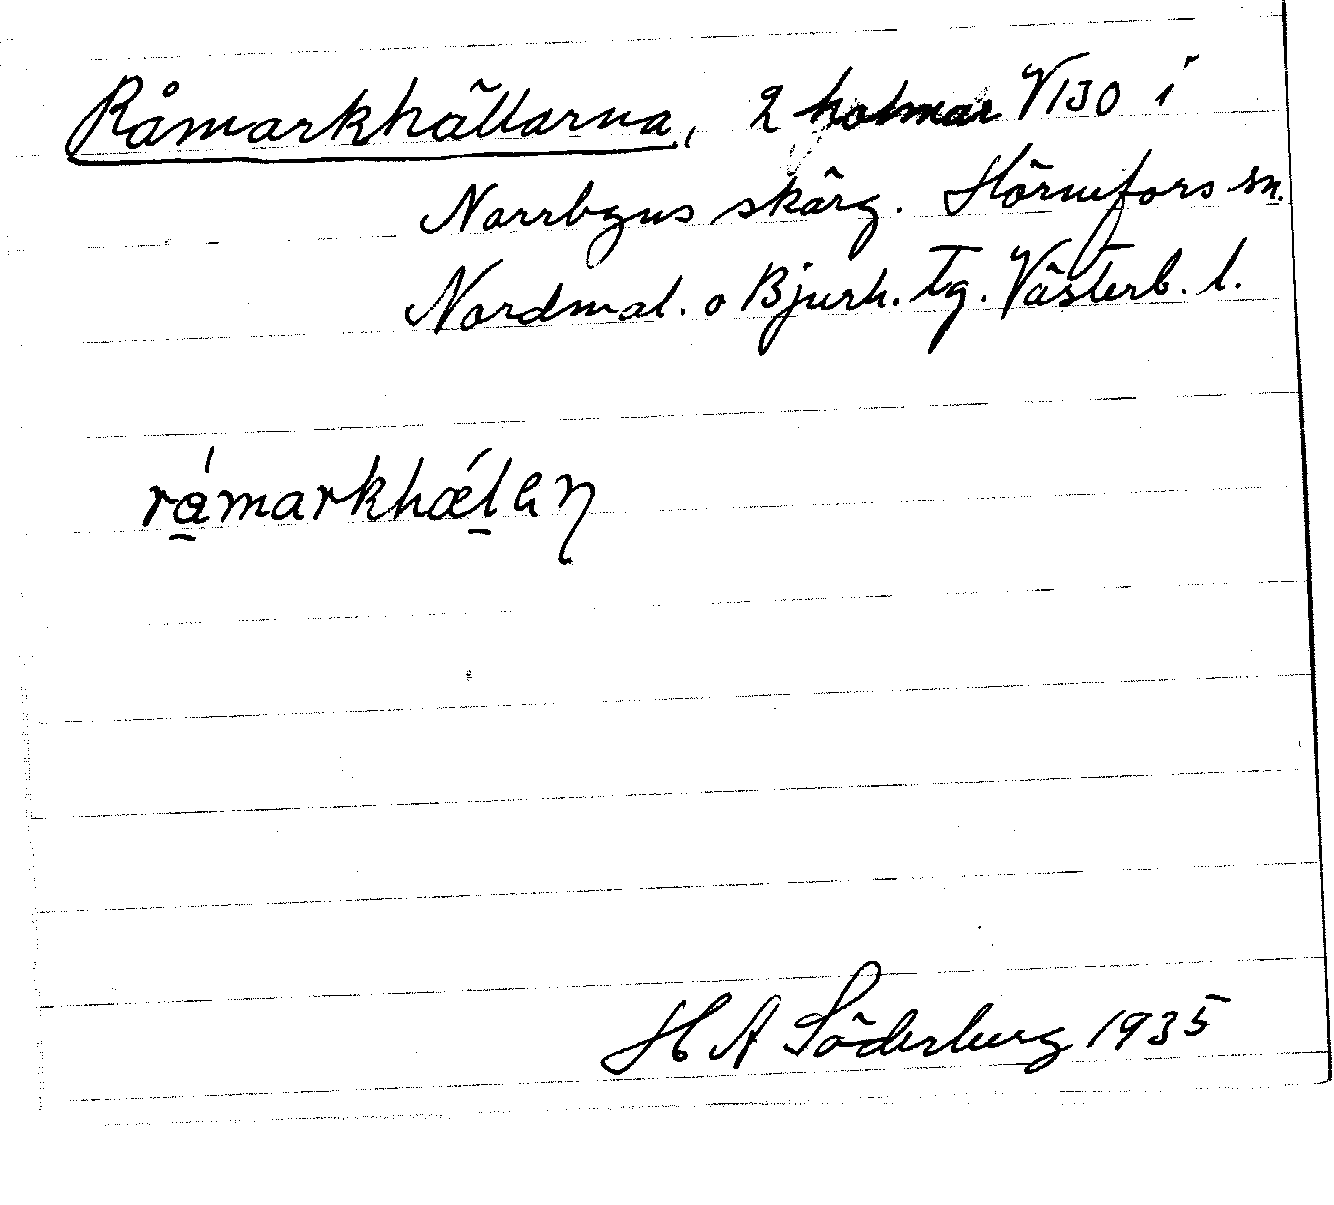 Råmarkhällarna, 2 holmar V130 i
Norrbyns skärg. Hörnefors sn.
Nordmal. o Bjurh. Tg. Västerb. l.
H A Söderberg 1935